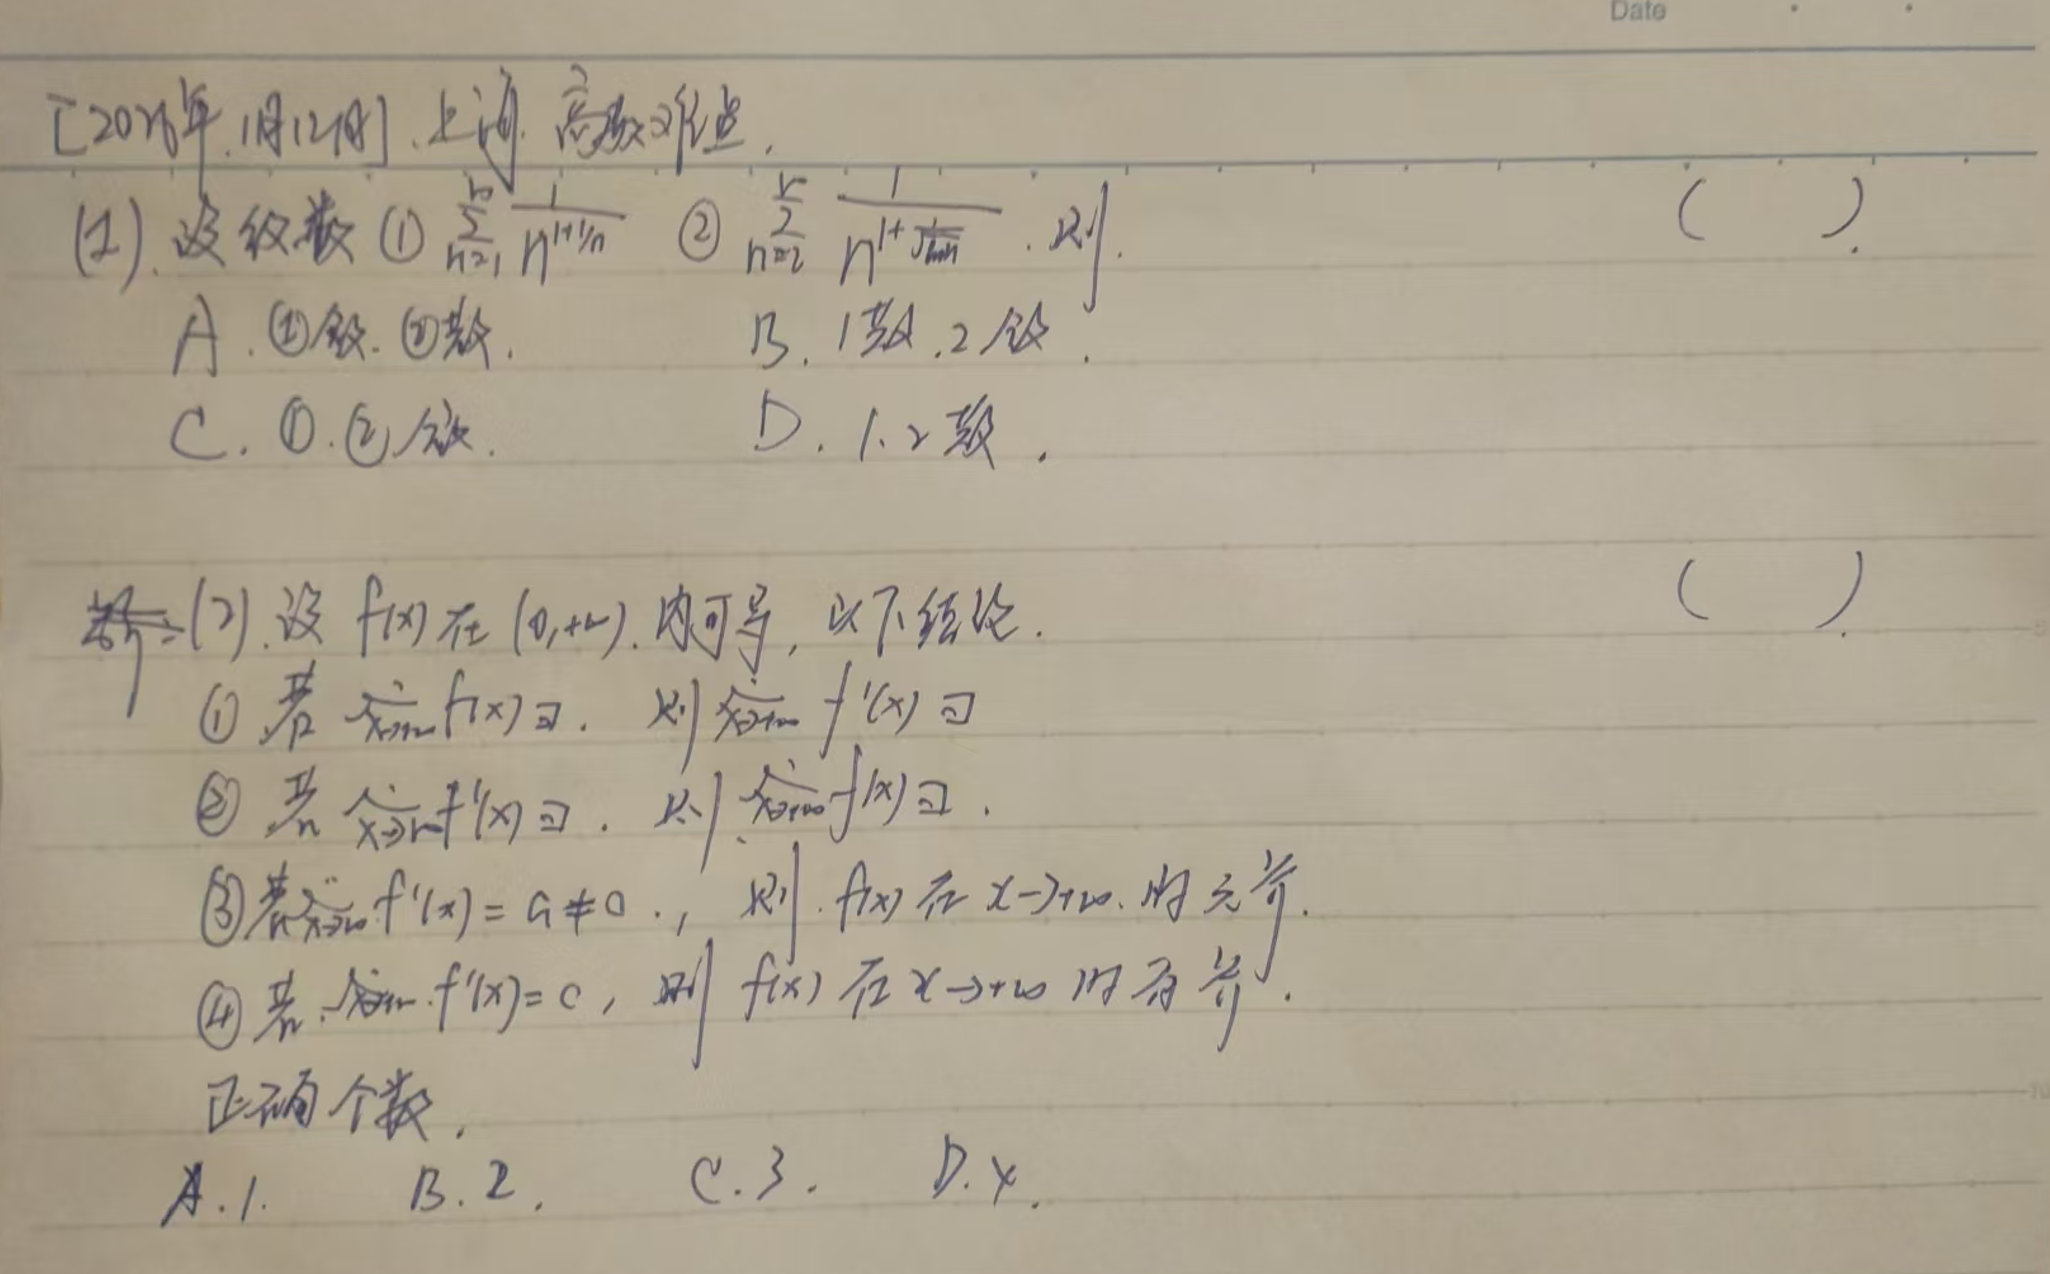 Date
[2026年.1月12日].上海.高数难点.
(1).设级数 ① ∑_{n=1}^{∞} 1/n^{1+1/n} ② ∑_{n=2}^{∞} 1/n^{1+1/√ln n} . 则. ( ).
A.①敛.②散. B. 1散.2敛.
C. ①.②敛. D. 1.2散.
(2).设 f(x)在(0,+∞).内可导,以下结论. ( ).
① 若 lim_{x→+∞} f(x)∃. 则 lim_{x→+∞} f'(x)∃
② 若 lim_{x→+∞} f'(x)∃. 则 lim_{x→+∞} f(x)∃.
③若 lim_{x→+∞} f'(x)=a≠0., 则.f(x)在x→+∞.时无界.
④若.lim_{x→+∞}.f'(x)=0, 则 f(x)在x→+∞时有界.
正确个数.
A.1. B.2. C.3. D.4.